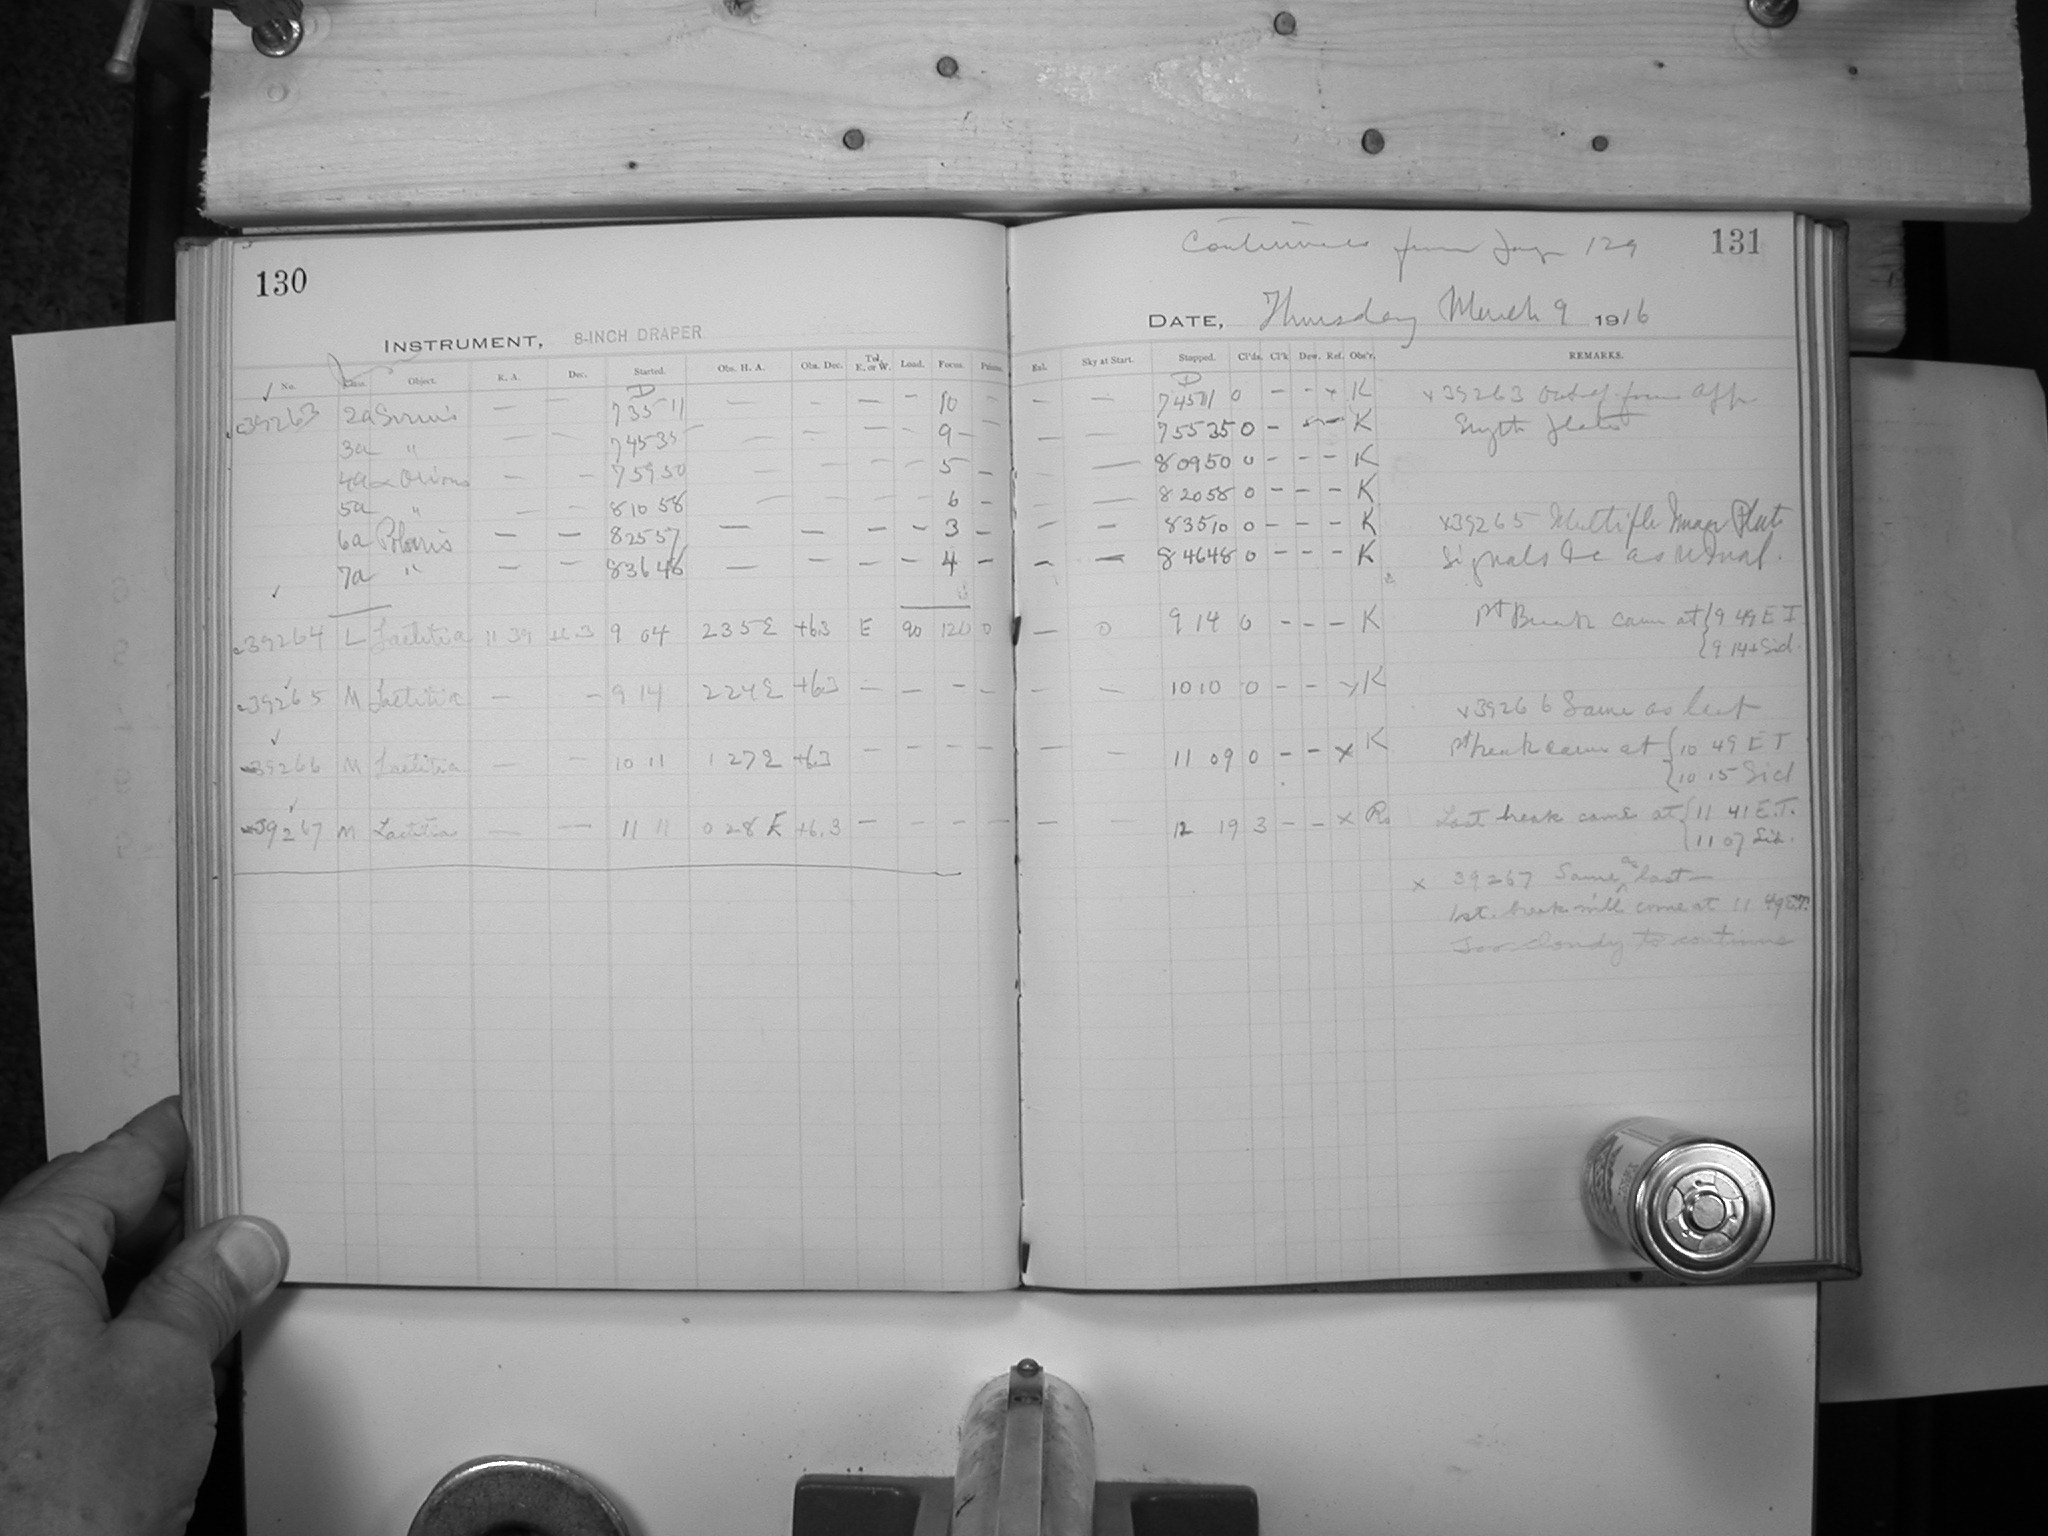 130
INSTRUMENT, 8-INCH DRAPER
No. Class. Object. R. A. Dec. Started. Obs. H. A. Obs. Dec. Tel. E. or W. Load. Focus.
D
39263 2a Sirius — — 7 35 11 — — — — 10 —
3a " 7 45 35 — — — — 9 —
4a α Orionis — — 7 59 50 — — — — 5 —
5a " — — 8 10 58 — — — — 6 —
6a Polaris — — 8 25 57 — — — — 3 —
7a " — — 8 36 48 — — — — 4 —
39264 L Laetitia 11 39 +6.3 9 04 2 35 E +6.3 E 90 120 0
39265 M Laetitia — — 9 14 2 24 E +6.3 — — — —
39266 M Laetitia — — 10 11 1 27 E +6.3 — — — —
39267 M Laetitia — — 11 11 0 28 E +6.3 — — — —
Continued from 129
131
DATE, Thursday March 9 1916
Sky at Start. Stopped. Cl'ds. Cl'k Dew. Ref. Obs'r. REMARKS.
D
— — 7 45 11 0 — — x K x39263 Out of focus
— — 7 55 35 0 — — — K
— — 8 09 50 0 — — — K
— — 8 20 58 0 — — — K
— — 8 35 10 0 — — — K x39265 Multiple Image Plate
— — 8 46 48 0 — — — K Signals &c as usual.
— 0 9 14 0 — — — K 1st Break came at { 9 49 E T
{ 9 14+ Sid.
— — 10 10 0 — — x K
x39266 Same as last
— — 11 09 0 — — x K 1st break came at { 10 49 E T
{ 10 15 Sid
— — 12 19 3 — — x Last break came at { 11 41 E.T.
{ 11 07 Sid.
x 39267 Same as last—
1st. break will come at 11 49 E.T.
Too cloudy to continue